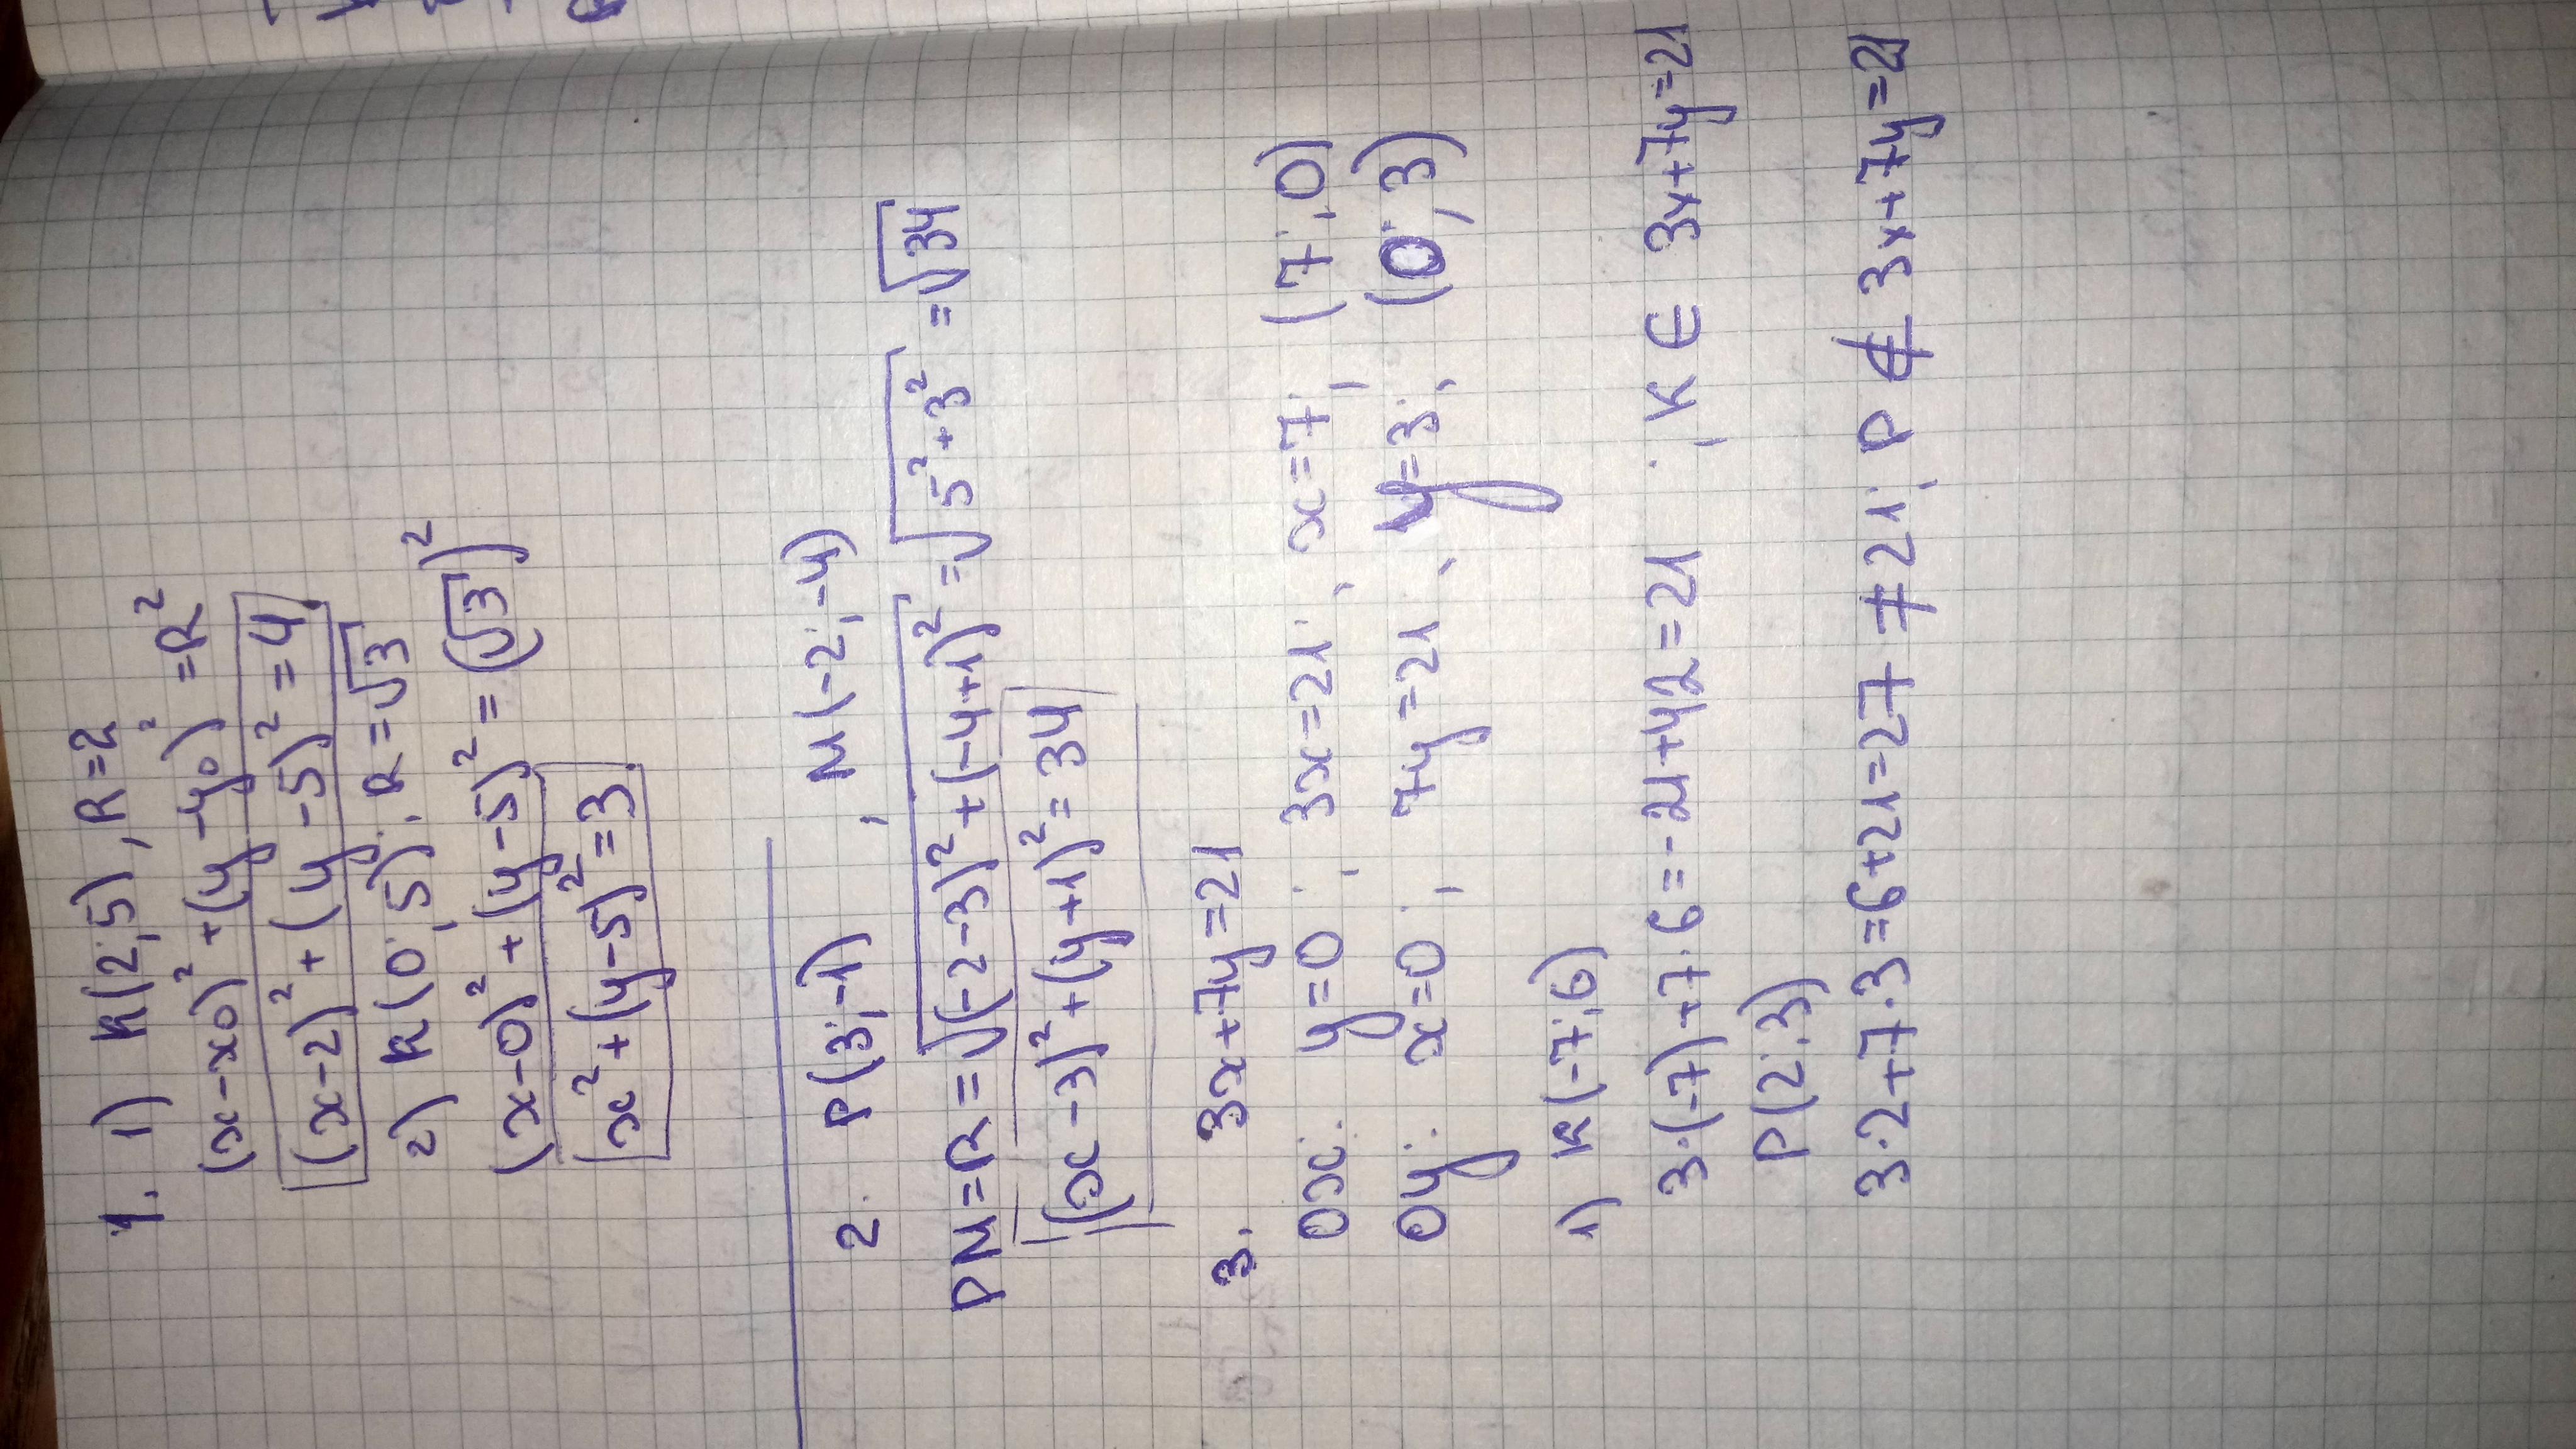 1. 1) K(2;5), R=2
(x-x₀)²+(y-y₀)²=R²
(x-2)²+(y-5)²=4
2) K(0;5); R=√3
(x-0)²+(y-5)²=(√3)²
x²+(y-5)²=3
2. P(3;-1) , M(-2;-4)
PM=R=√(-2-3)²+(-4+1)²=√5²+3²=√34
(x-3)²+(y+1)²=34
3. 3x+7y=21
Ox: y=0 ; 3x=21; x=7; (7;0)
Oy: x=0 ; 7y=21; y=3; (0;3)
1) K(-7;6)
3·(-7)+7·6=-21+42=21 ; K∈ 3x+7y=21
P(2;3)
3·2+7·3=6+21=27≠21; P∉ 3x+7y=21